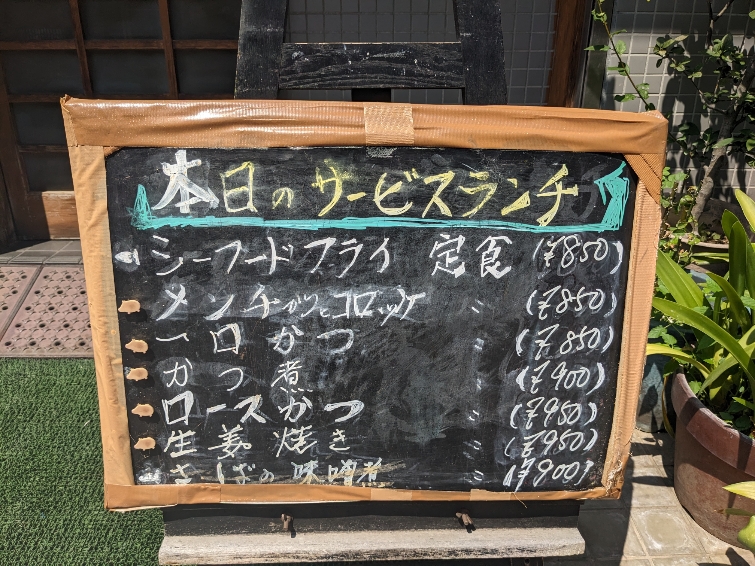 本日のサービスランチ
シーフードフライ 定食 (¥850)
メンチかつとコロッケ 〃 (¥850)
一口かつ 〃 (¥850)
かつ煮 〃 (¥900)
ロースかつ 〃 (¥950)
生姜焼き 〃 (¥950)
さばの味噌煮 〃 (¥900)